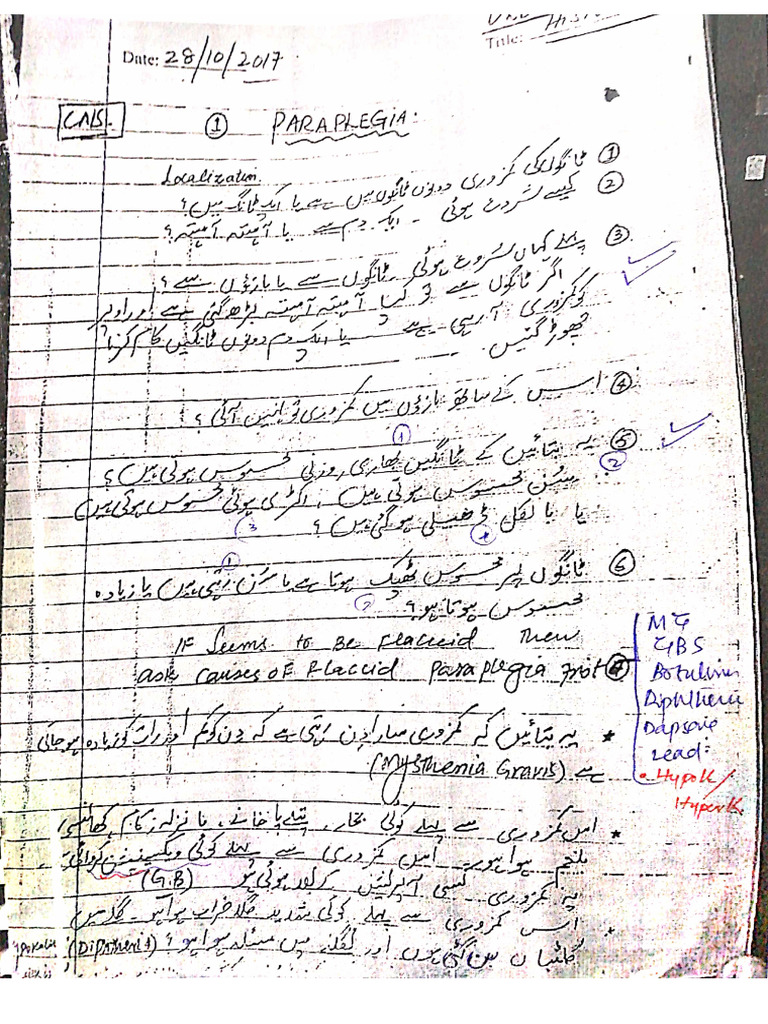 Title:
Date: 28/10/2017
CNS. ① PARAPLEGIA:
① ٹانگوں کی کمزوری دونوں ٹانگوں میں ہے یا ایک ٹانگ میں؟
Localization
② کیسے شروع ہوئی - ایک دم سے یا آہستہ آہستہ؟
③ پہلے کہاں شروع ہوئی ٹانگوں سے یا بازؤں سے؟
اگر ٹانگوں سے تو کیا آہستہ آہستہ بڑھ گئی ہے اور اوپر
کو کمزوری آ رہی ہے یا ایک دم دونوں ٹانگیں کام کرنا
چھوڑ گئیں
④ اس کے ساتھ بازؤں میں کمزوری تو نہیں آئی؟
⑤ یہ بتائیں کے ٹانگیں بھاری روزنی محسوس ہوتی ہیں؟
سُن محسوس ہوتی ہیں، اکڑی ہوئی محسوس ہوتی ہیں
یا بالقل ڈھیلی ہو گئی ہیں؟
⑥ ٹانگوں پر محسوس ٹھیک ہوتا ہے یا سُن رہتی ہیں یا زیادہ
محسوس ہوتا ہو؟
IF Seems to Be Flaccid Then
ask causes OF Flaccid Paraplegia
MG
GBS
Botulinu
Diphtheri
Dapsone
Lead:
HypoK/
HyperK.
* یہ بتائیں کہ کمزوری سارا دن رہتی ہے کہ دن کو کم اور رات کو زیادہ ہو جاتی
ہے (Mysthenia Gravis)
* اس کمزوری سے پہلے کوئی بخار، پتلے پاخانے، یا نزلہ زکام کھانسی
بلغم ہوا ہو۔ اس کمزوری سے پہلے کوئی ویکسینیشن کروائی
یہ کمزوری کسی آپریشن کے بعد ہوئی ہو (G.B)
* اس کمزوری سے پہلے کوئی شدید گلا خراب ہوا ہو۔ گلے میں
گلٹیاں بن گئی ہوں اور نگلنے میں مسئلہ ہوا ہو؟ (Diphtheria)